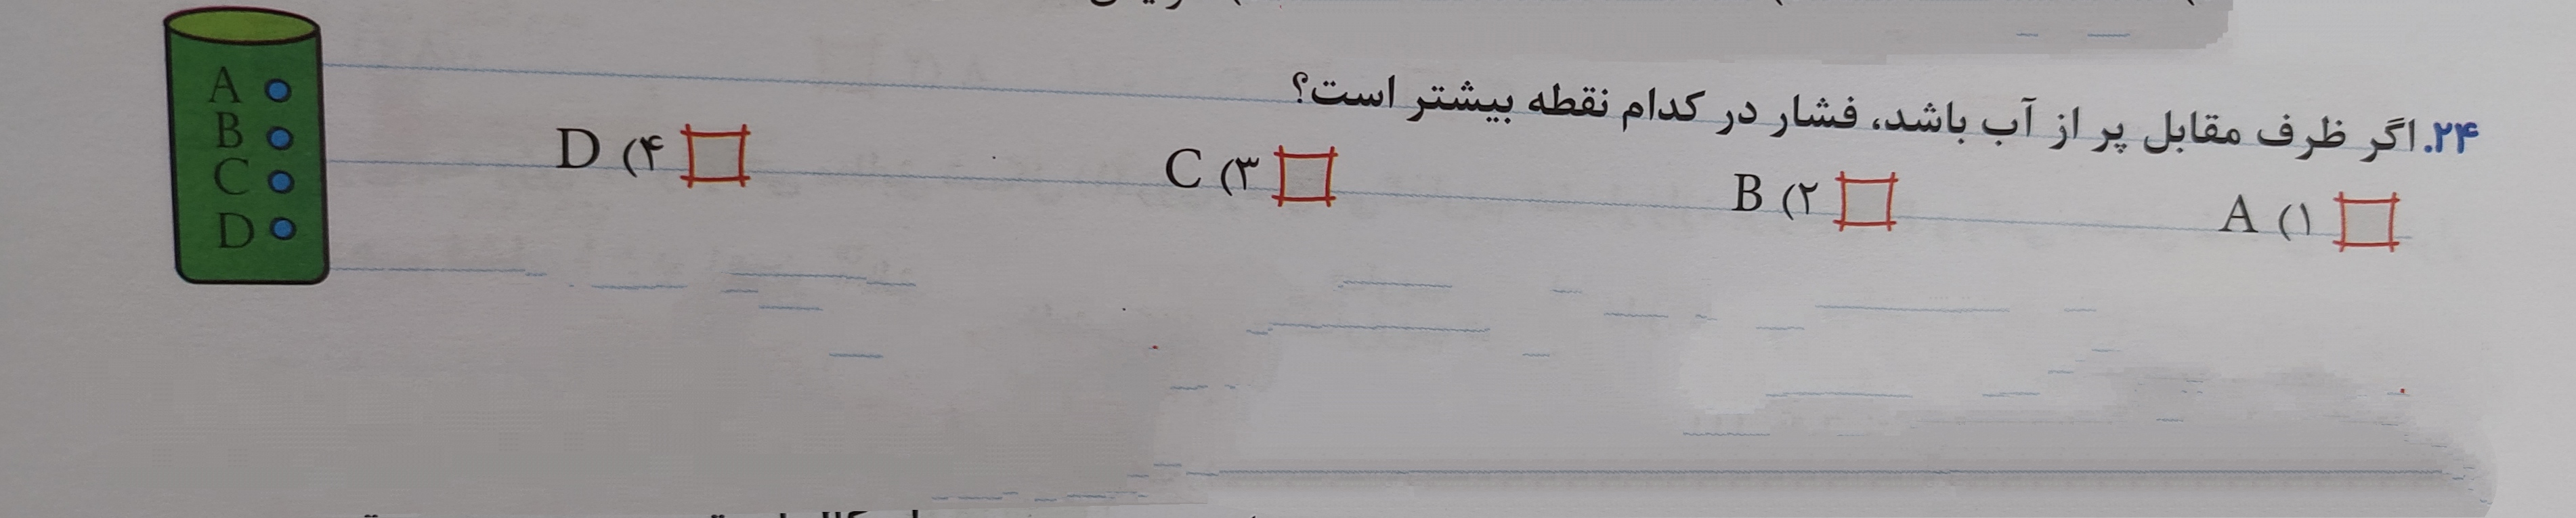 ۲۴. اگر ظرف مقابل پر از آب باشد، فشار در کدام نقطه بیشتر است؟
۱) A ۲) B ۳) C ۴) D
A
B
C
D